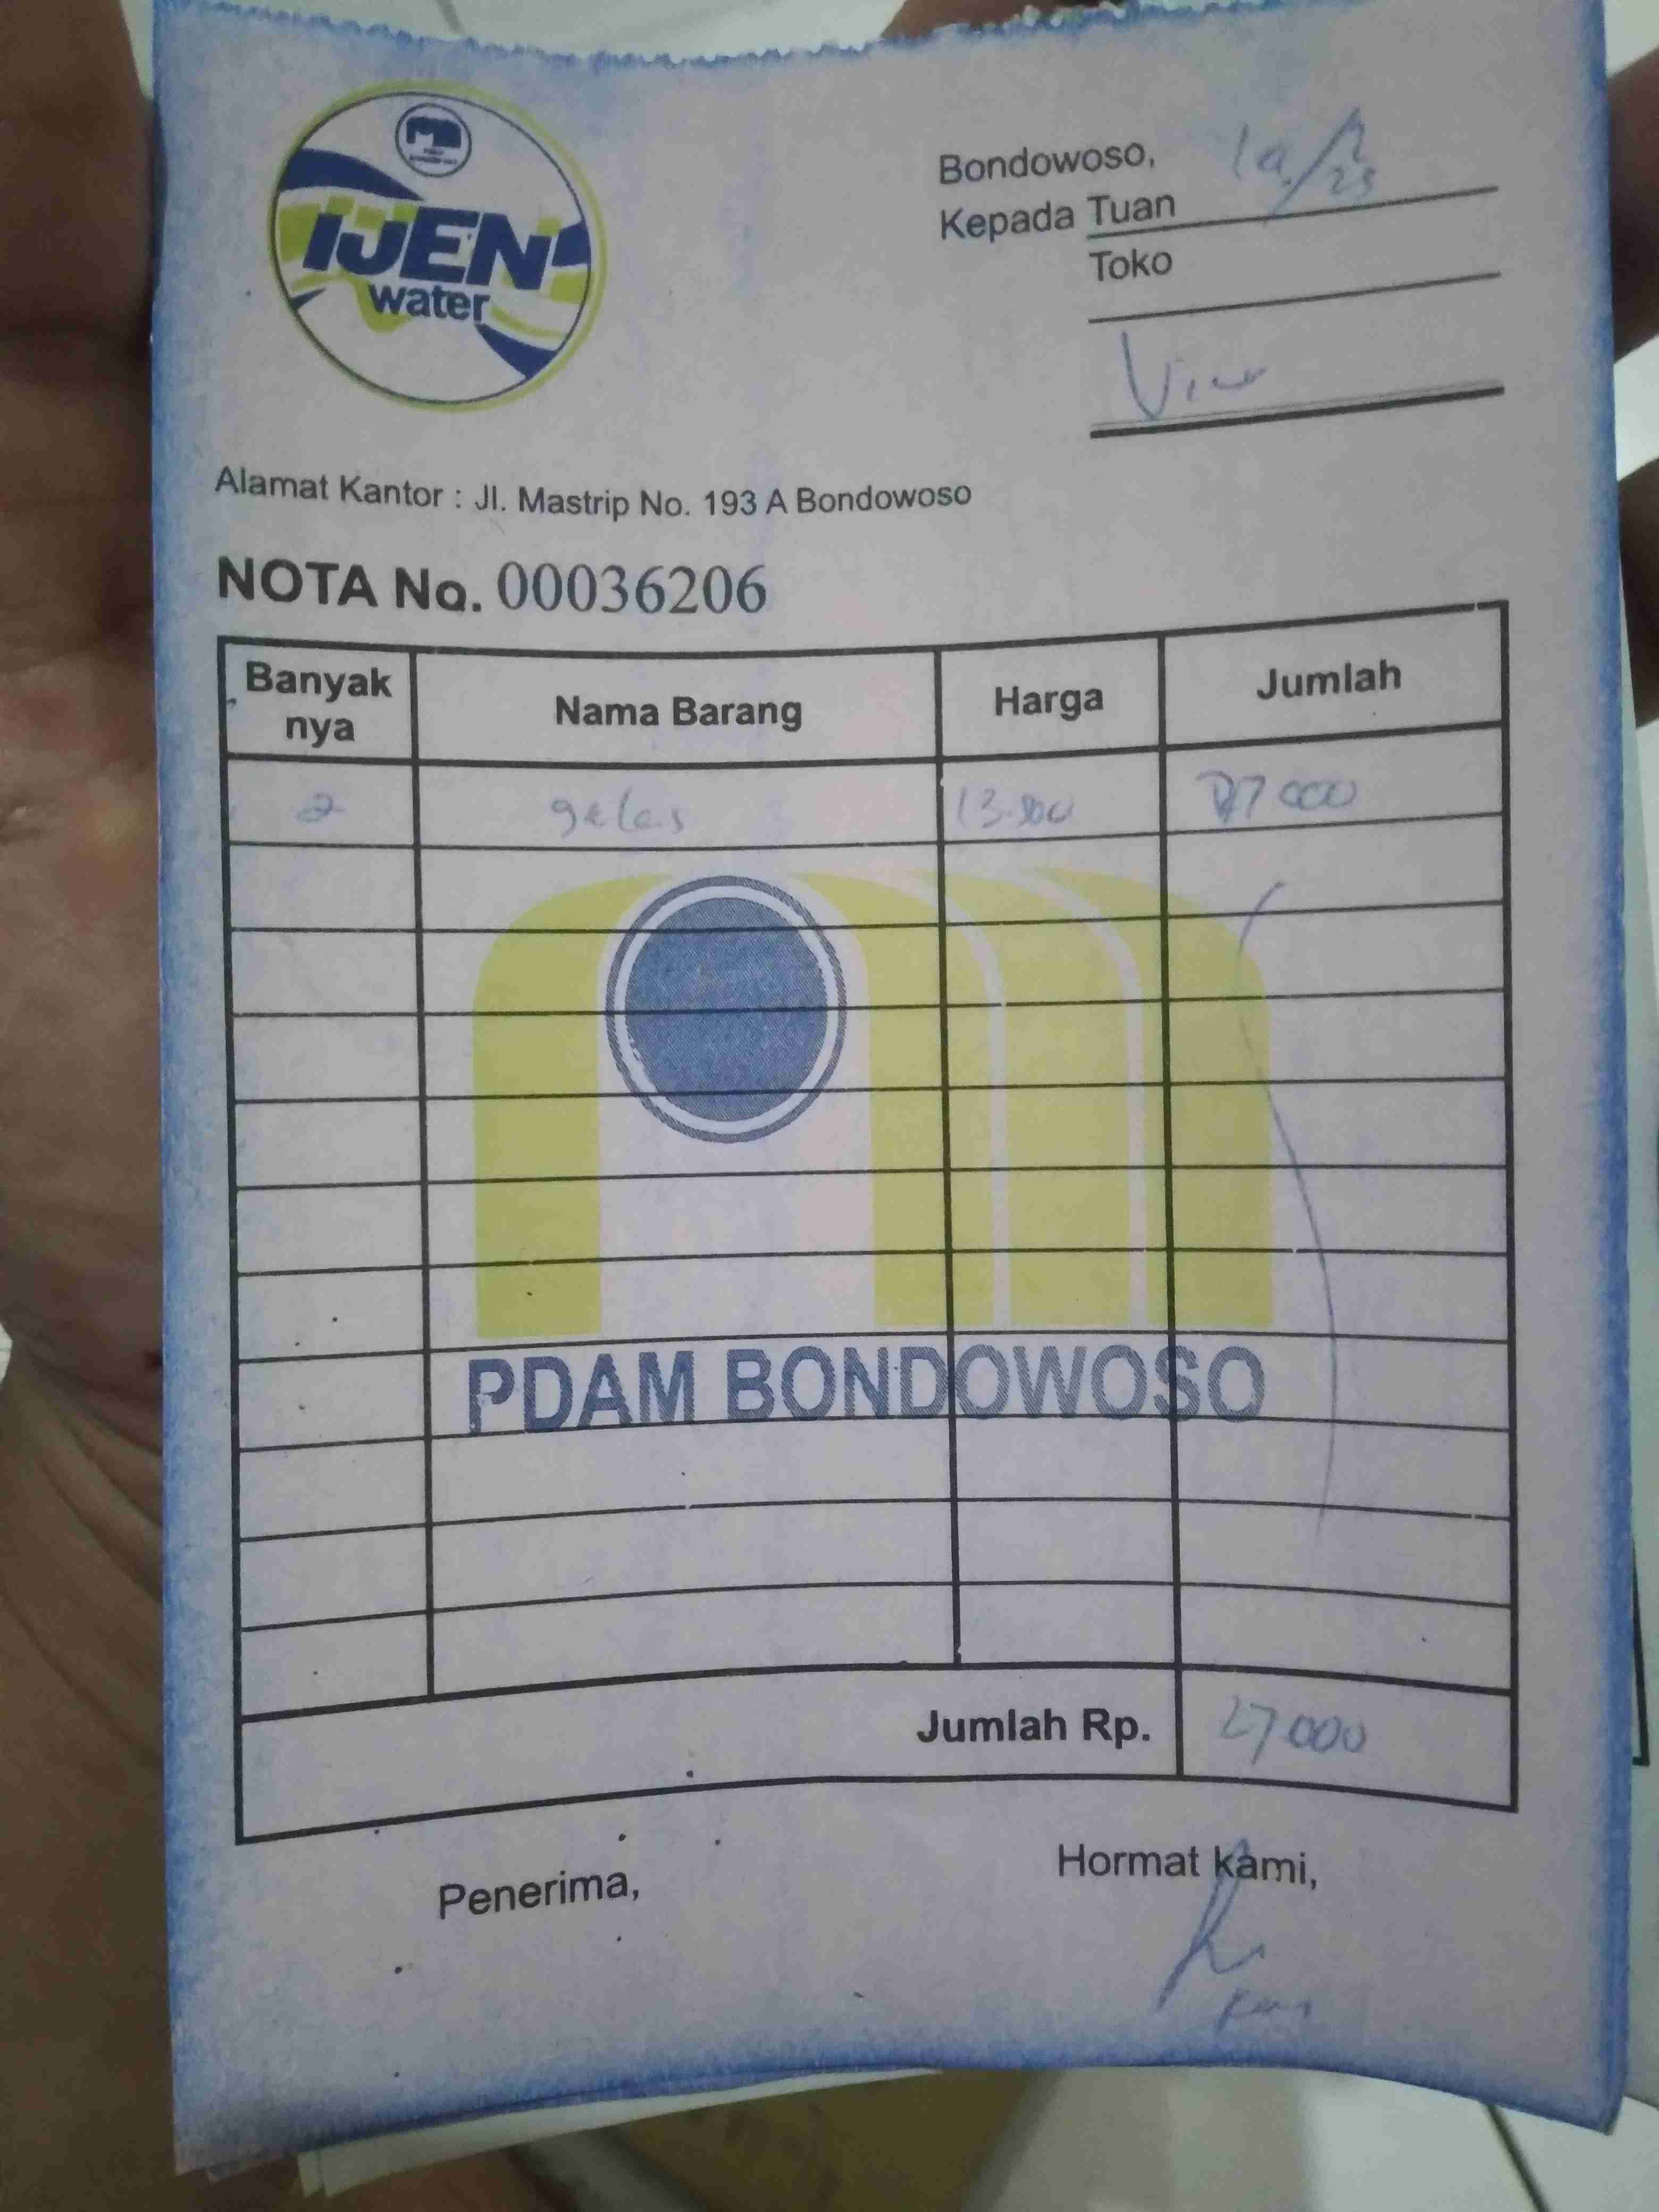 IJEN
water
Bondowoso,
Kepada Tuan
Toko
Alamat Kantor : Jl. Mastrip No. 193 A Bondowoso
NOTA No. 00036206
Banyak nya Nama Barang Harga Jumlah
2 gelas 13.500 27000
PDAM BONDOWOSO
Jumlah Rp. 27000
Penerima, Hormat kami,